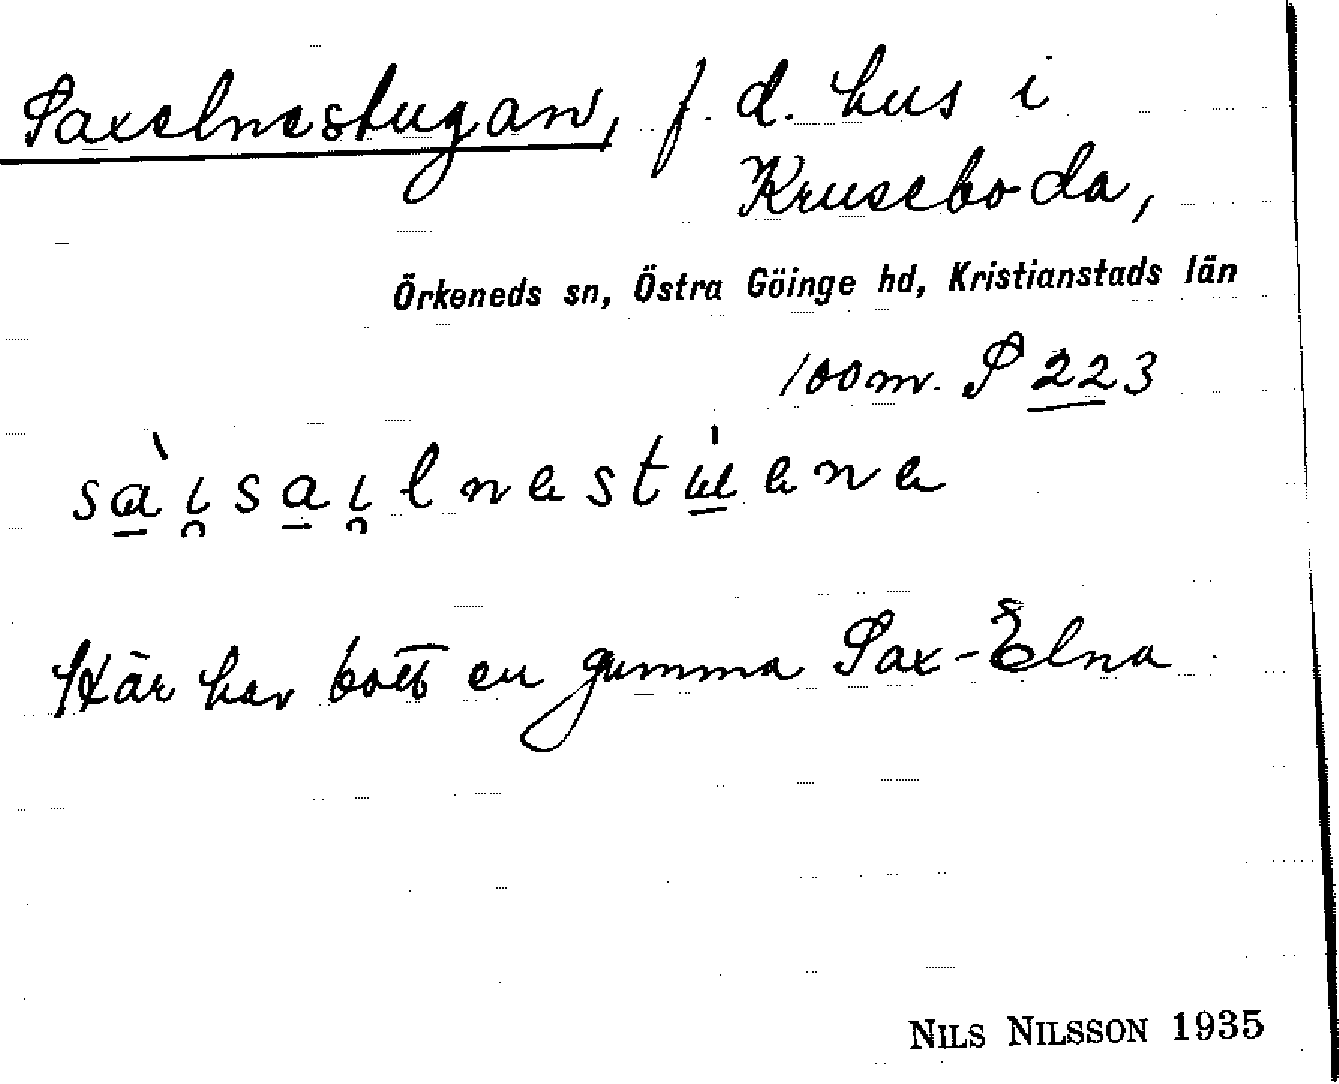 Saxelnestugan, f. d. hus i
Kruseboda,
Örkeneds sn, Östra Göinge hd, Kristianstads län
100 m. S 223
sàɩ̯saɩ̯lnastu̍ana
Här har bott en gumma Sax-Elna
NILS NILSSON 1935